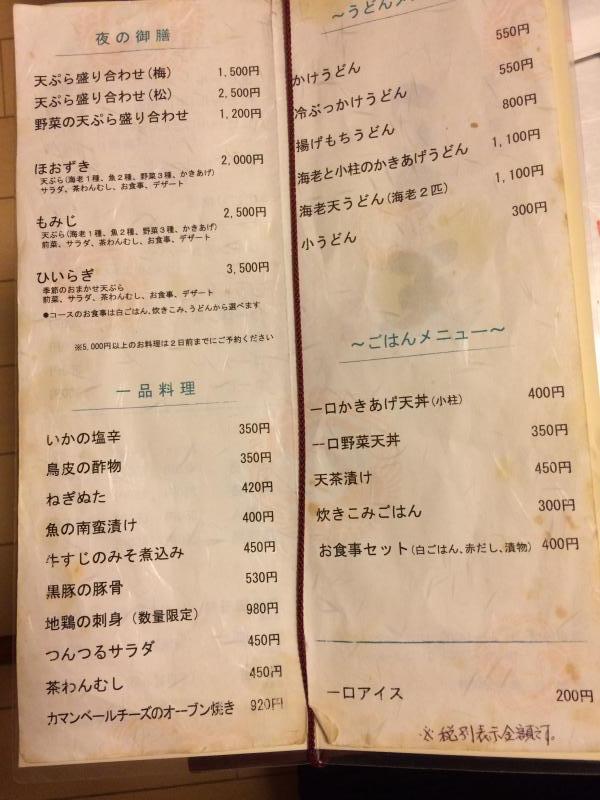 夜の御膳
天ぷら盛り合わせ(梅) 1,500円
天ぷら盛り合わせ(松) 2,500円
野菜の天ぷら盛り合わせ 1,200円
ほおずき 2,000円
天ぷら(海老1種、魚2種、野菜3種、かきあげ)
サラダ、茶わんむし、お食事、デザート
もみじ 2,500円
天ぷら(海老1種、魚2種、野菜3種、かきあげ)
前菜、サラダ、茶わんむし、お食事、デザート
ひいらぎ 3,500円
季節のおまかせ天ぷら
前菜、サラダ、茶わんむし、お食事、デザート
●コースのお食事は白ごはん、炊きこみ、うどんから選べます
※5,000円以上のお料理は2日前までにご予約ください
一品料理
いかの塩辛 350円
鳥皮の酢物 350円
ねぎぬた 420円
魚の南蛮漬け 400円
牛すじのみそ煮込み 450円
黒豚の豚骨 530円
地鶏の刺身(数量限定) 980円
つんつるサラダ 450円
茶わんむし 450円
カマンベールチーズのオーブン焼き 920円
～うどんメ
かけうどん 550円
冷ぶっかけうどん 550円
揚げもちうどん 800円
海老と小柱のかきあげうどん 1,100円
海老天うどん(海老2匹) 1,100円
小うどん 300円
～ごはんメニュー～
一口かきあげ天丼(小柱) 400円
一口野菜天丼 350円
天茶漬け 450円
炊きこみごはん 300円
お食事セット(白ごはん、赤だし、漬物) 400円
一口アイス 200円
※税別表示金額です。